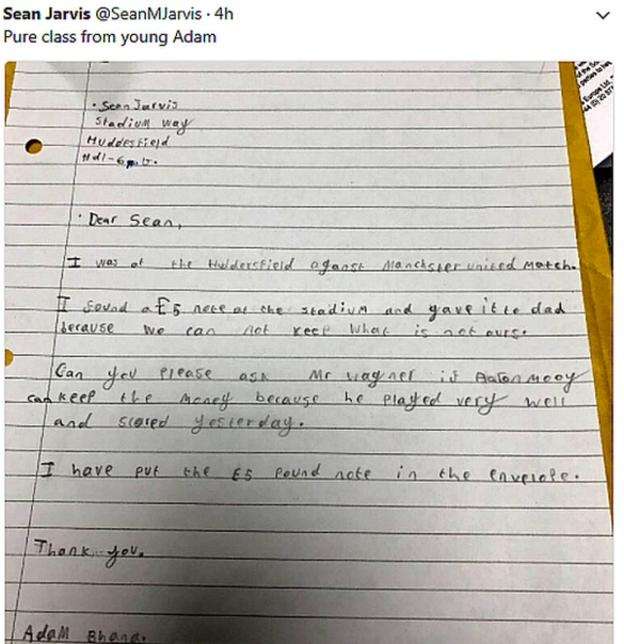 Sean Jarvis @SeanMJarvis · 4h
Pure class from young Adam
· Sean Jarvis
Stadium way
Huddesfield
Hd1-6
· Dear Sean,
I was at the Huldersfield aganst Manchster united Match.
I found a £5 note at the stadium and gave it to dad
because we can not keep what is not ours.
Can you please ask Mr wagner if Aaron Mooy
can keep the money because he played very well
and scored yesterday.
I have put the £5 pound note in the envelope.
Thank you.
Adam Bhana.